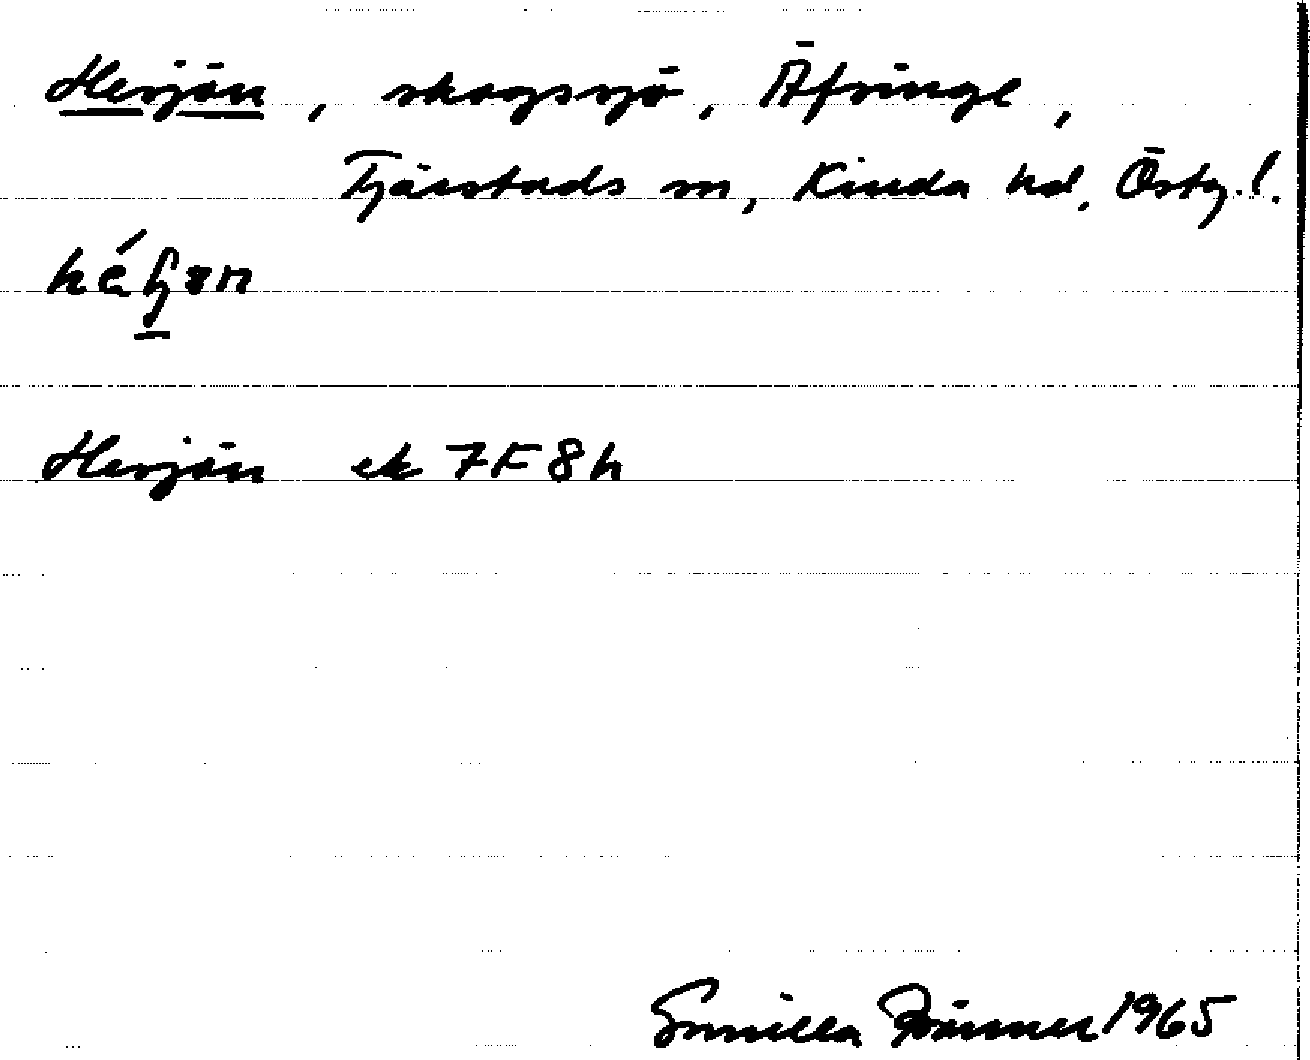 Hersjön, skogssjö, Äfsinge,
Tjärstads sn, Kinda hd, Östg.l.
Hersjön ek 7F8h
Gunilla 1965